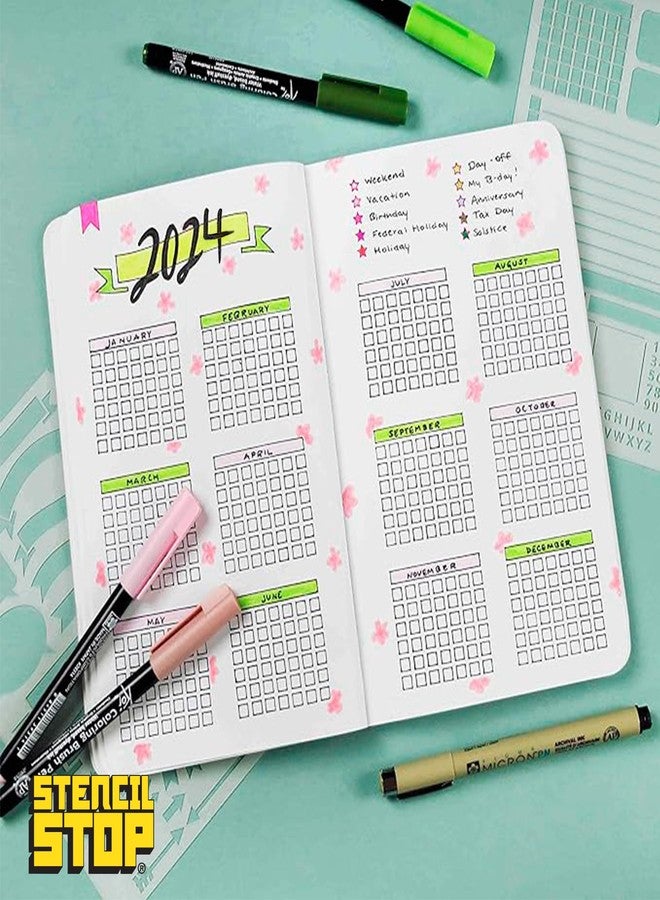 Water based, dyestuff ink
Coloring Brush Pen
2024
JANUARY
FEBRUARY
MARCH
APRIL
MAY
JUNE
Weekend
Vacation
Birthday
Federal Holiday
Holiday
Day-off
My B-day!
Anniversary
Tax Day
Solstice
JULY
AUGUST
SEPTEMBER
OCTOBER
NOVEMBER
DECEMBER
Coloring Brush Pen
MICRON PN
ARCHIVAL INK
STENCIL
STOP®